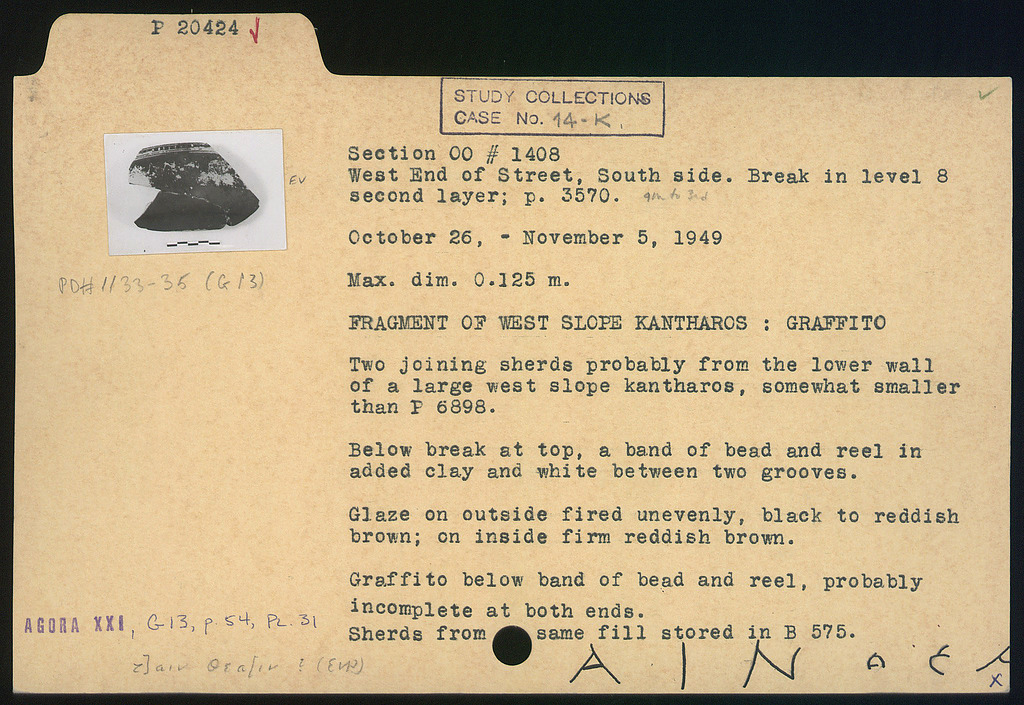 P 20424
STUDY COLLECTIONS
CASE No. 14-K.
EV
PD#1133-35 (G13)
Section OO # 1408
West End of Street, South side. Break in level 8
second layer; p. 3570.
October 26, - November 5, 1949
Max. dim. 0.125 m.
FRAGMENT OF WEST SLOPE KANTHAROS : GRAFFITO
Two joining sherds probably from the lower wall
of a large west slope kantharos, somewhat smaller
than P 6898.
Below break at top, a band of bead and reel in
added clay and white between two grooves.
Glaze on outside fired unevenly, black to reddish
brown; on inside firm reddish brown.
Graffito below band of bead and reel, probably
incomplete at both ends.
Sherds from same fill stored in B 575.
AGORA XXI, G13, p. 54, PL. 31